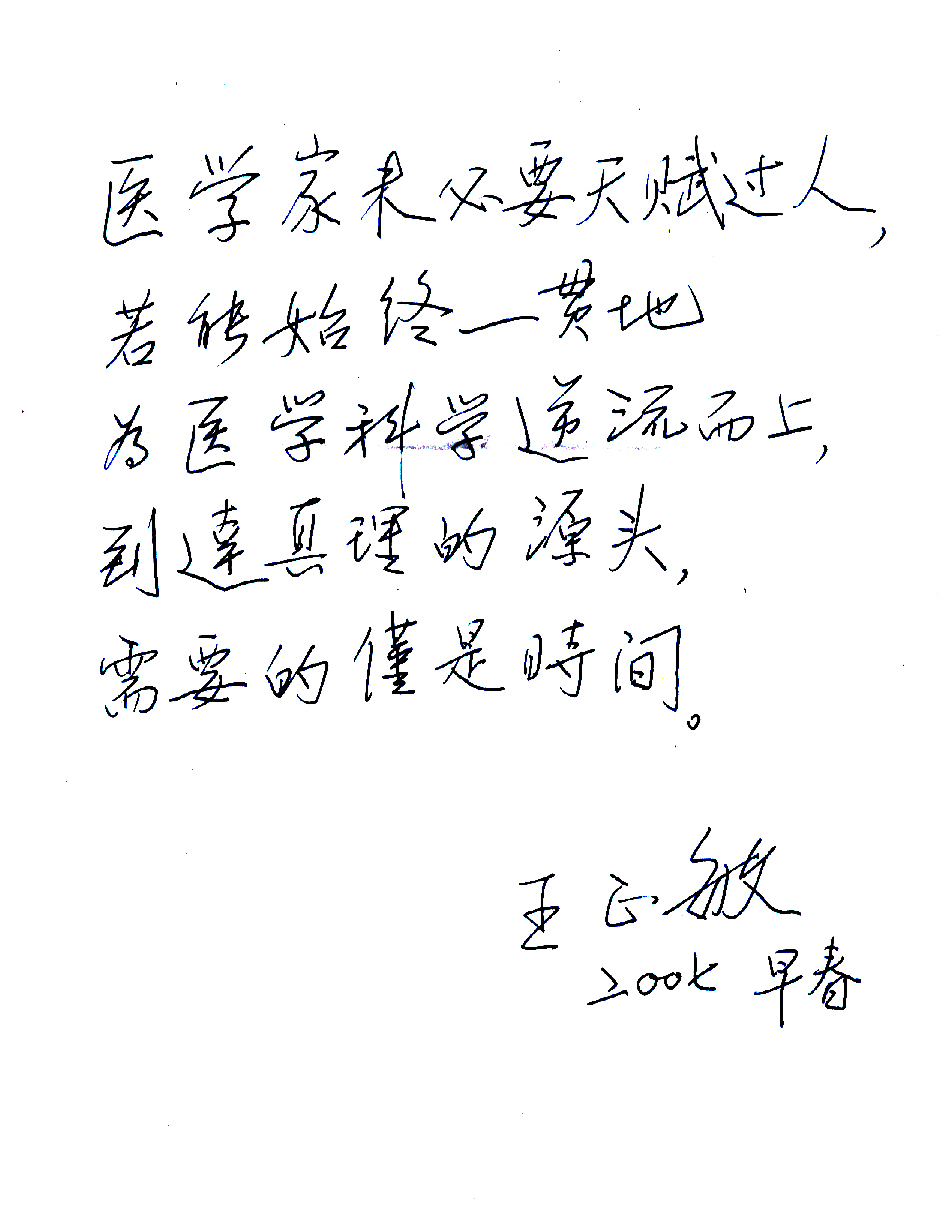 医学家未必要天赋过人，
若能始终一贯地
为医学科学逆流而上，
到達真理的源头，
需要的僅是時间。
王正敏
二〇〇七 早春